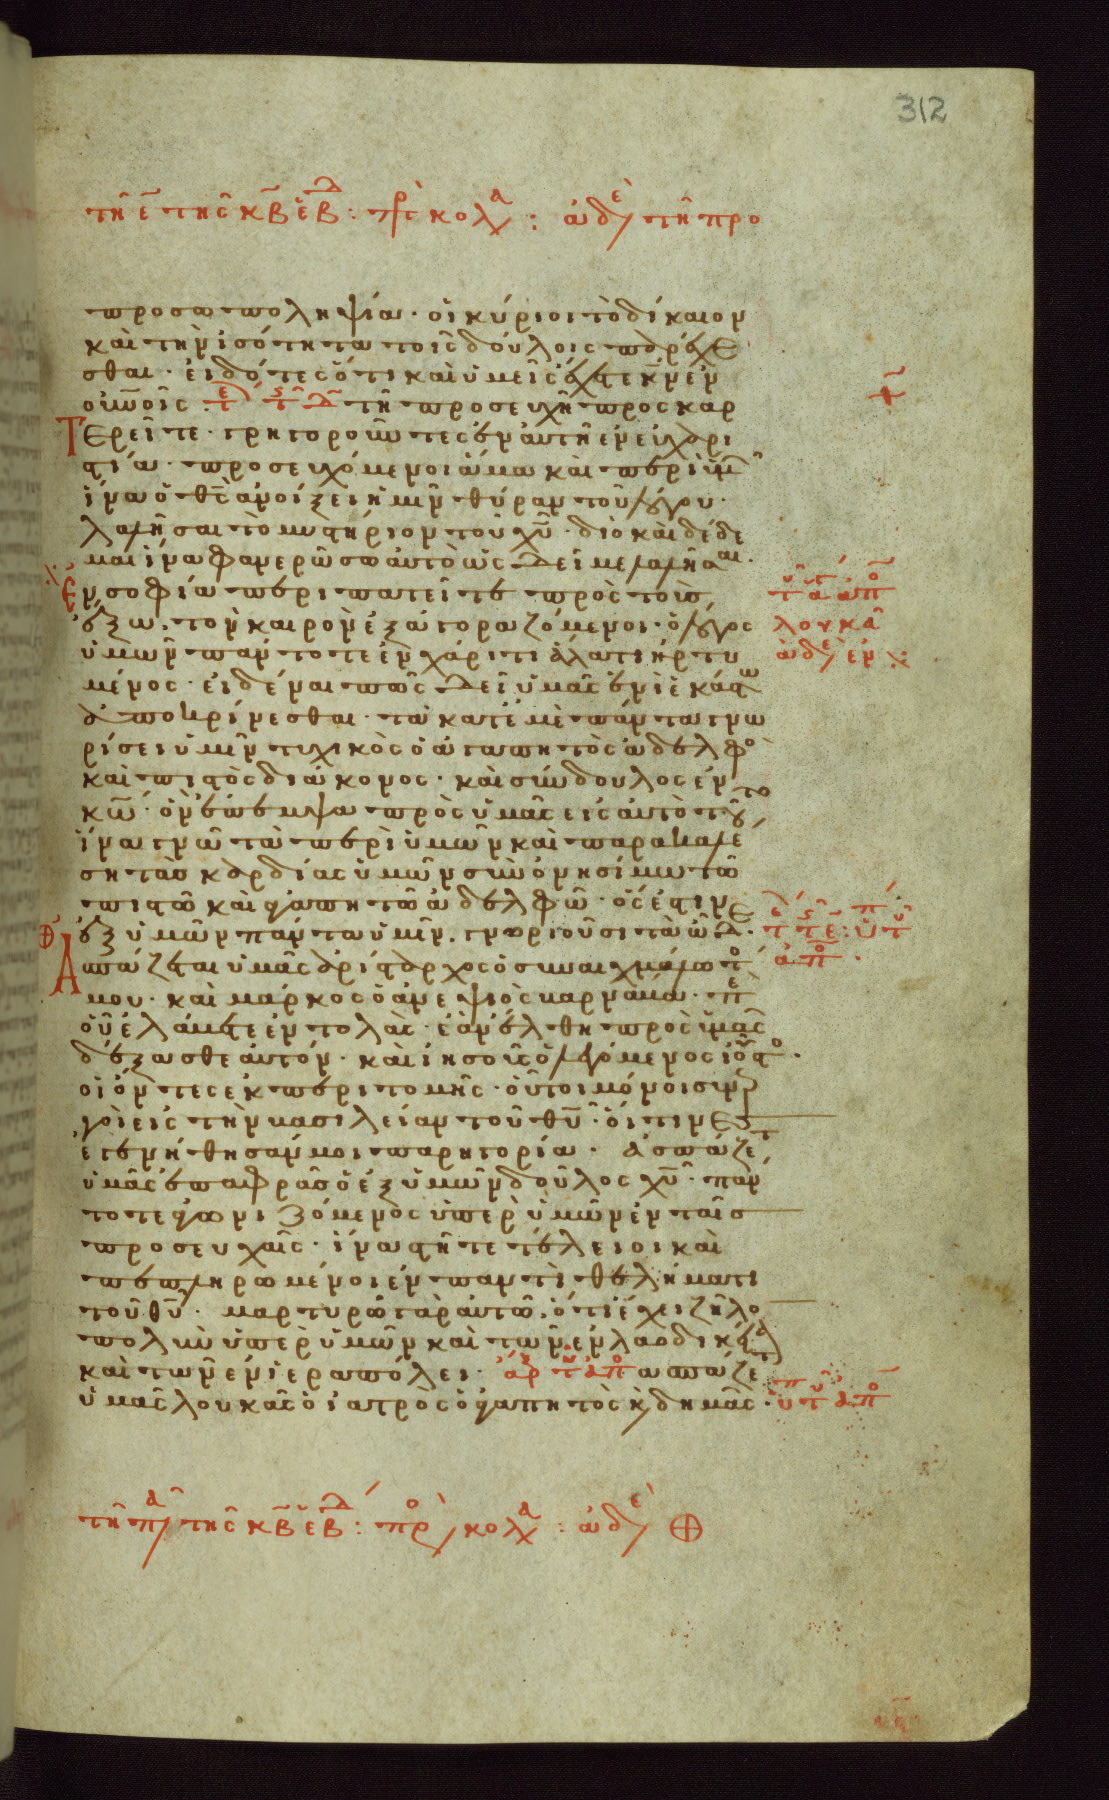 312
τῆ ε̄ τῆς κ̄β ἑβδ : πρς κολα : ἀδε τῆ προ
προσωποληψία· οἱ κύριοι τὸ δίκαιον
καὶ τὴν ἰσότητα τοῖς δούλοις παρέχε
σθαι· εἰδότες ὅτι καὶ ὑμεῖς ἔχετε κ̄ν ἐν
οὐνοῖς τῆ προσευχῆ προσκαρ
Τερεῖτε· γρηγοροῦντες ἐν αὐτῆ ἐν εὐχαρι
στία· προσευχόμενοι ἅμα καὶ περὶ ἡμ
ἵνα ὁ θ̄ς ἀνοίξει ἡμῖν θύραν τοῦ λόγου·
λαλῆσαι τὸ μυστήριον τοῦ χ̄υ· διὸ καὶ δέδε
μαι ἵνα φανερώσω αὐτὸ ὡς δεῖ με λαλῆσαι·
Ἐν σοφία περιπατεῖτε πρὸς τοὺς
ἔξω· τὸν καιρὸν ἐξαγοραζόμενοι· ὁ λόγος
λουκᾶ
ὑμῶν πάντοτε ἐν χάριτι ἅλατι ἠρτυ
ἀδε ἐν
μένος· εἰδέναι πῶς δεῖ ὑμᾶς ἑνὶ ἑκάστω
ἀποκρίνεσθαι· τὰ κατ ἐμὲ πάντα γνω
ρίσει ὑμῖν τυχικὸς ὁ ἀγαπητὸς ἀδελφο
καὶ πιστὸς διάκονος· καὶ σύνδουλος ἐν
κ̄ω· ὃν ἔπεμψα πρὸς ὑμᾶς εἰς αὐτὸ τοῦτο
ἵνα γνῶ τὰ περὶ ὑμῶν καὶ παρακαλέ
ση τὰς καρδίας ὑμῶν σὺν ὀνησίμω τῶ
πιστῶ καὶ ἀγαπητῶ ἀδελφῶ· ὅς ἐστιν
ἐξ ὑμῶν πάντα ὑμῖν· γνωριοῦσι τὰ ὧδε·
Ἀσπάζεται ὑμᾶς ἀρίσταρχος ὁ συναιχμάλωτο
μου· καὶ μάρκος ὁ ἀνεψιὸς βαρνάβα· πε
οὗ ἐλάβετε ἐντολὰς· ἐὰν ἔλθη πρὸς ὑμᾶς
δέξασθε αὐτόν· καὶ ἰησοῦς ὁ λεγόμενος ἰοῦστο·
οἱ ὄντες ἐκ περιτομῆς· οὗτοι μόνοι συνερ
γοὶ εἰς τὴν βασιλείαν τοῦ θ̄υ· οἵτινες
ἐγενήθησάν μοι παρηγορία· Ἀσπάζετ
ὑμᾶς ἐπαφρᾶς ὁ ἐξ ὑμῶν δοῦλος χ̄υ· πάν
τοτε ἀγωνιζόμενος ὑπὲρ ὑμῶν ἐν ταῖς
προσευχαῖς· ἵνα στῆτε τέλειοι καὶ
πεπληρωμένοι ἐν παντὶ θελήματι
τοῦ θ̄υ· μαρτυρῶ γὰρ αὐτῶ· ὅτι ἔχει ζῆλο
πολὺν ὑπὲρ ὑμῶν καὶ τῶν ἐν λαοδικεία
καὶ τῶν ἐν ἱεραπόλει· ἀσπάζετ
ὑμᾶς λουκᾶς ὁ ἰατρὸς ὁ ἀγαπητὸς κ δημᾶς·
τῆ πα τῆς κ̄β ἑβδ : προ κολα : ἀδε ⊕